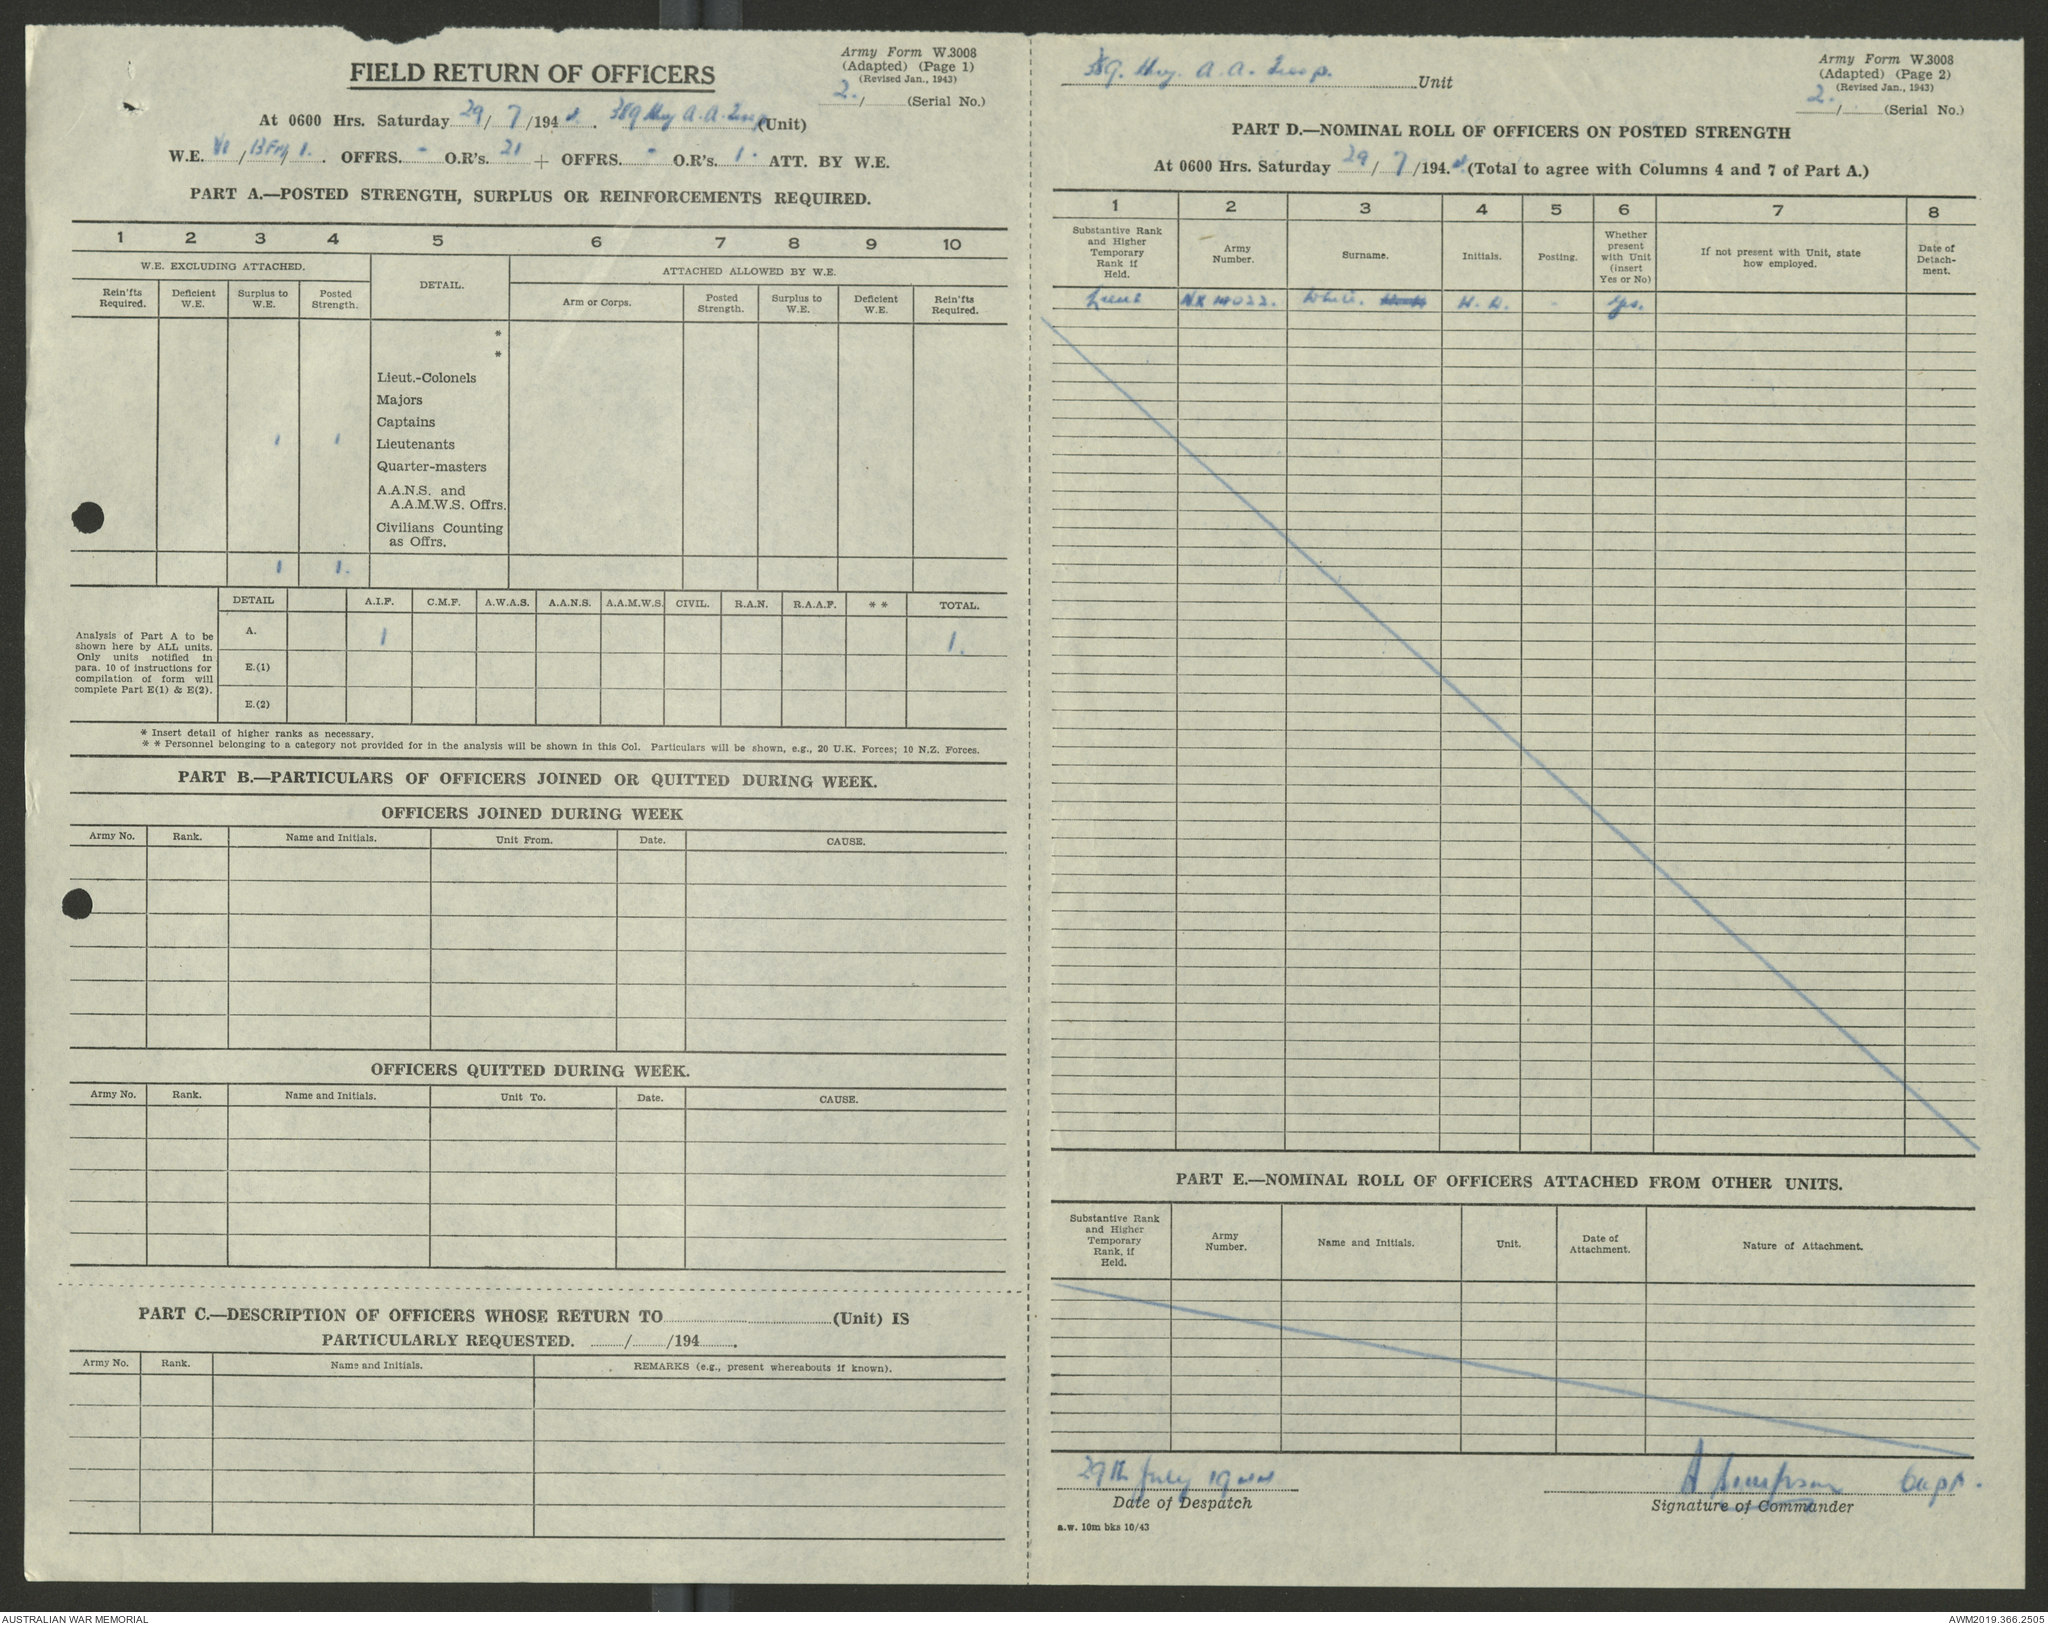 Army Form W.3008
(Adapted) (Page 1)
(Revised Jan., 1943)
2. / (Serial No.)
FIELD RETURN OF OFFICERS
At 0600 Hrs. Saturday 29/7/1944. 389 Hvy A.A. Troop (Unit)
W.E. VI / 1. OFFRS. - O.R's. 21 + OFFRS. - O.R's. 1. ATT. BY W.E.
PART A.—POSTED STRENGTH, SURPLUS OR REINFORCEMENTS REQUIRED.
1 2 3 4 5 6 7 8 9 10
W.E. EXCLUDING ATTACHED. DETAIL. ATTACHED ALLOWED BY W.E.
Rein'fts Required. Deficient W.E. Surplus to W.E. Posted Strength. Arm or Corps. Posted Strength. Surplus to W.E. Deficient W.E. Rein'fts Required.
*
*
Lieut.-Colonels
Majors
Captains
1 1 Lieutenants
Quarter-masters
A.A.N.S. and
A.A.M.W.S. Offrs.
Civilians Counting
as Offrs.
1 1.
Analysis of Part A to be
shown here by ALL units.
Only units notified in
para. 10 of instructions for
compilation of form will
complete Part E(1) & E(2).
DETAIL A.I.F. C.M.F. A.W.A.S. A.A.N.S. A.A.M.W.S. CIVIL. R.A.N. R.A.A.F. * * TOTAL.
A. 1 1.
E.(1)
E.(2)
* Insert detail of higher ranks as necessary.
* * Personnel belonging to a category not provided for in the analysis will be shown in this Col. Particulars will be shown, e.g., 20 U.K. Forces; 10 N.Z. Forces.
PART B.—PARTICULARS OF OFFICERS JOINED OR QUITTED DURING WEEK.
OFFICERS JOINED DURING WEEK
Army No. Rank. Name and Initials. Unit From. Date. CAUSE.
OFFICERS QUITTED DURING WEEK.
Army No. Rank. Name and Initials. Unit To. Date. CAUSE.
PART C.—DESCRIPTION OF OFFICERS WHOSE RETURN TO (Unit) IS
PARTICULARLY REQUESTED. / /194 .
Army No. Rank. Name and Initials. REMARKS (e.g., present whereabouts if known).
389. Hvy. A.A. Troop. Unit
Army Form W.3008
(Adapted) (Page 2)
(Revised Jan., 1943)
2. / (Serial No.)
PART D.—NOMINAL ROLL OF OFFICERS ON POSTED STRENGTH
At 0600 Hrs. Saturday 29/7/194.4. (Total to agree with Columns 4 and 7 of Part A.)
1 2 3 4 5 6 7 8
Substantive Rank and Higher Temporary Rank if Held. Army Number. Surname. Initials. Posting. Whether present with Unit (insert Yes or No) If not present with Unit, state how employed. Date of Detach- ment.
Lieut White. - Yes.
PART E.—NOMINAL ROLL OF OFFICERS ATTACHED FROM OTHER UNITS.
Substantive Rank and Higher Temporary Rank, if Held. Army Number. Name and Initials. Unit. Date of Attachment. Nature of Attachment.
29th July 1944 A Simpson Capt.
Date of Despatch Signature of Commander
a.w. 10m bks 10/43
AUSTRALIAN WAR MEMORIAL AWM2019.366.2505